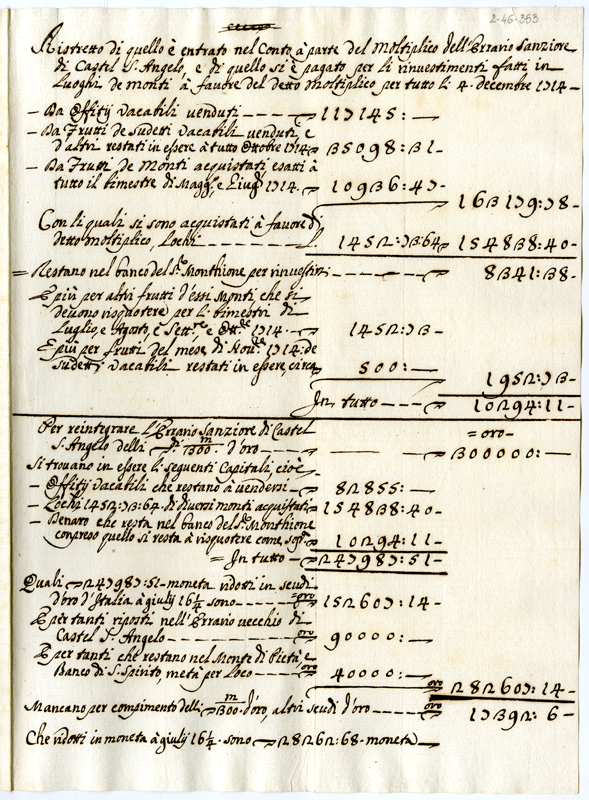 2-46-353
Ristretto di quello è entrato nel Conto à parte del Moltiplico dell'Errario Sanziore
di Castel S. Angelo, e di quello si è pagato per li rinvestimenti fatti in
Luoghi de monti à favore del detto Moltiplico per tutto li 4. Decembre 1714 –
– Da Offitij Vacabili venduti 117145: –
– Da Frutti de sudetti Vacabili venduti, e
d'altri restati in essere à tutto Ottobre 1714 35098:31 –
– Da Frutti de Monti acquistati esatti à
tutto il bimestre di Magg.o e Giug.o 1714. 10936:47 –
163179:78 –
Con li quali si sono acquistati à favore di
detto Moltiplico, Lochi L. 1452:73:64 154838:40 –
= Restano nel banco del S.r Monthione per rinvestire 8341:38 –
E più per altri frutti d'essi Monti che si
devono risquotere per li bimestri di
Luglio, e Agosto, e Sett.re, e Ott.re 1714. 1452:73 –
E più per frutti del mese di Nov.re 1714: de
sudetti Vacabili restati in essere, circa 500: –
1952:73 –
In tutto 10294:11 –
Per reintegrare l'Errario Sanziore di Castel
S. Angelo delli m/300. d'oro = oro – 300000: –
Si trovano in essere li seguenti Capitali, cioè
– Offitij Vacabili che restano à vendersi – 82855: –
– Lochi 1452:73:64. di diversi monti acquistati 154838:40 –
– Denaro che resta nel banco del S.r Monthione
compreso quello si resta à risquotere come sop.a 10294:11 –
= In tutto – 247987:51 –
Quali 247987:51 – moneta ridotti in scudi
d'oro d'Italia à giulij 16¼ sono oro 152607:14 –
E per tanti riposti nell'Errario vecchio di
Castel S. Angelo oro 90000: –
E per tanti che restano nel Monte di Pietà e
Banco di S. Spirito, metà per Loco oro 40000: –
oro 282607:14 –
Mancano per compimento delli m/300 – d'oro, altri scudi d'oro oro 17392: 6 –
Che ridotti in moneta à giulij 16¼ – sono 28262:68 – moneta –